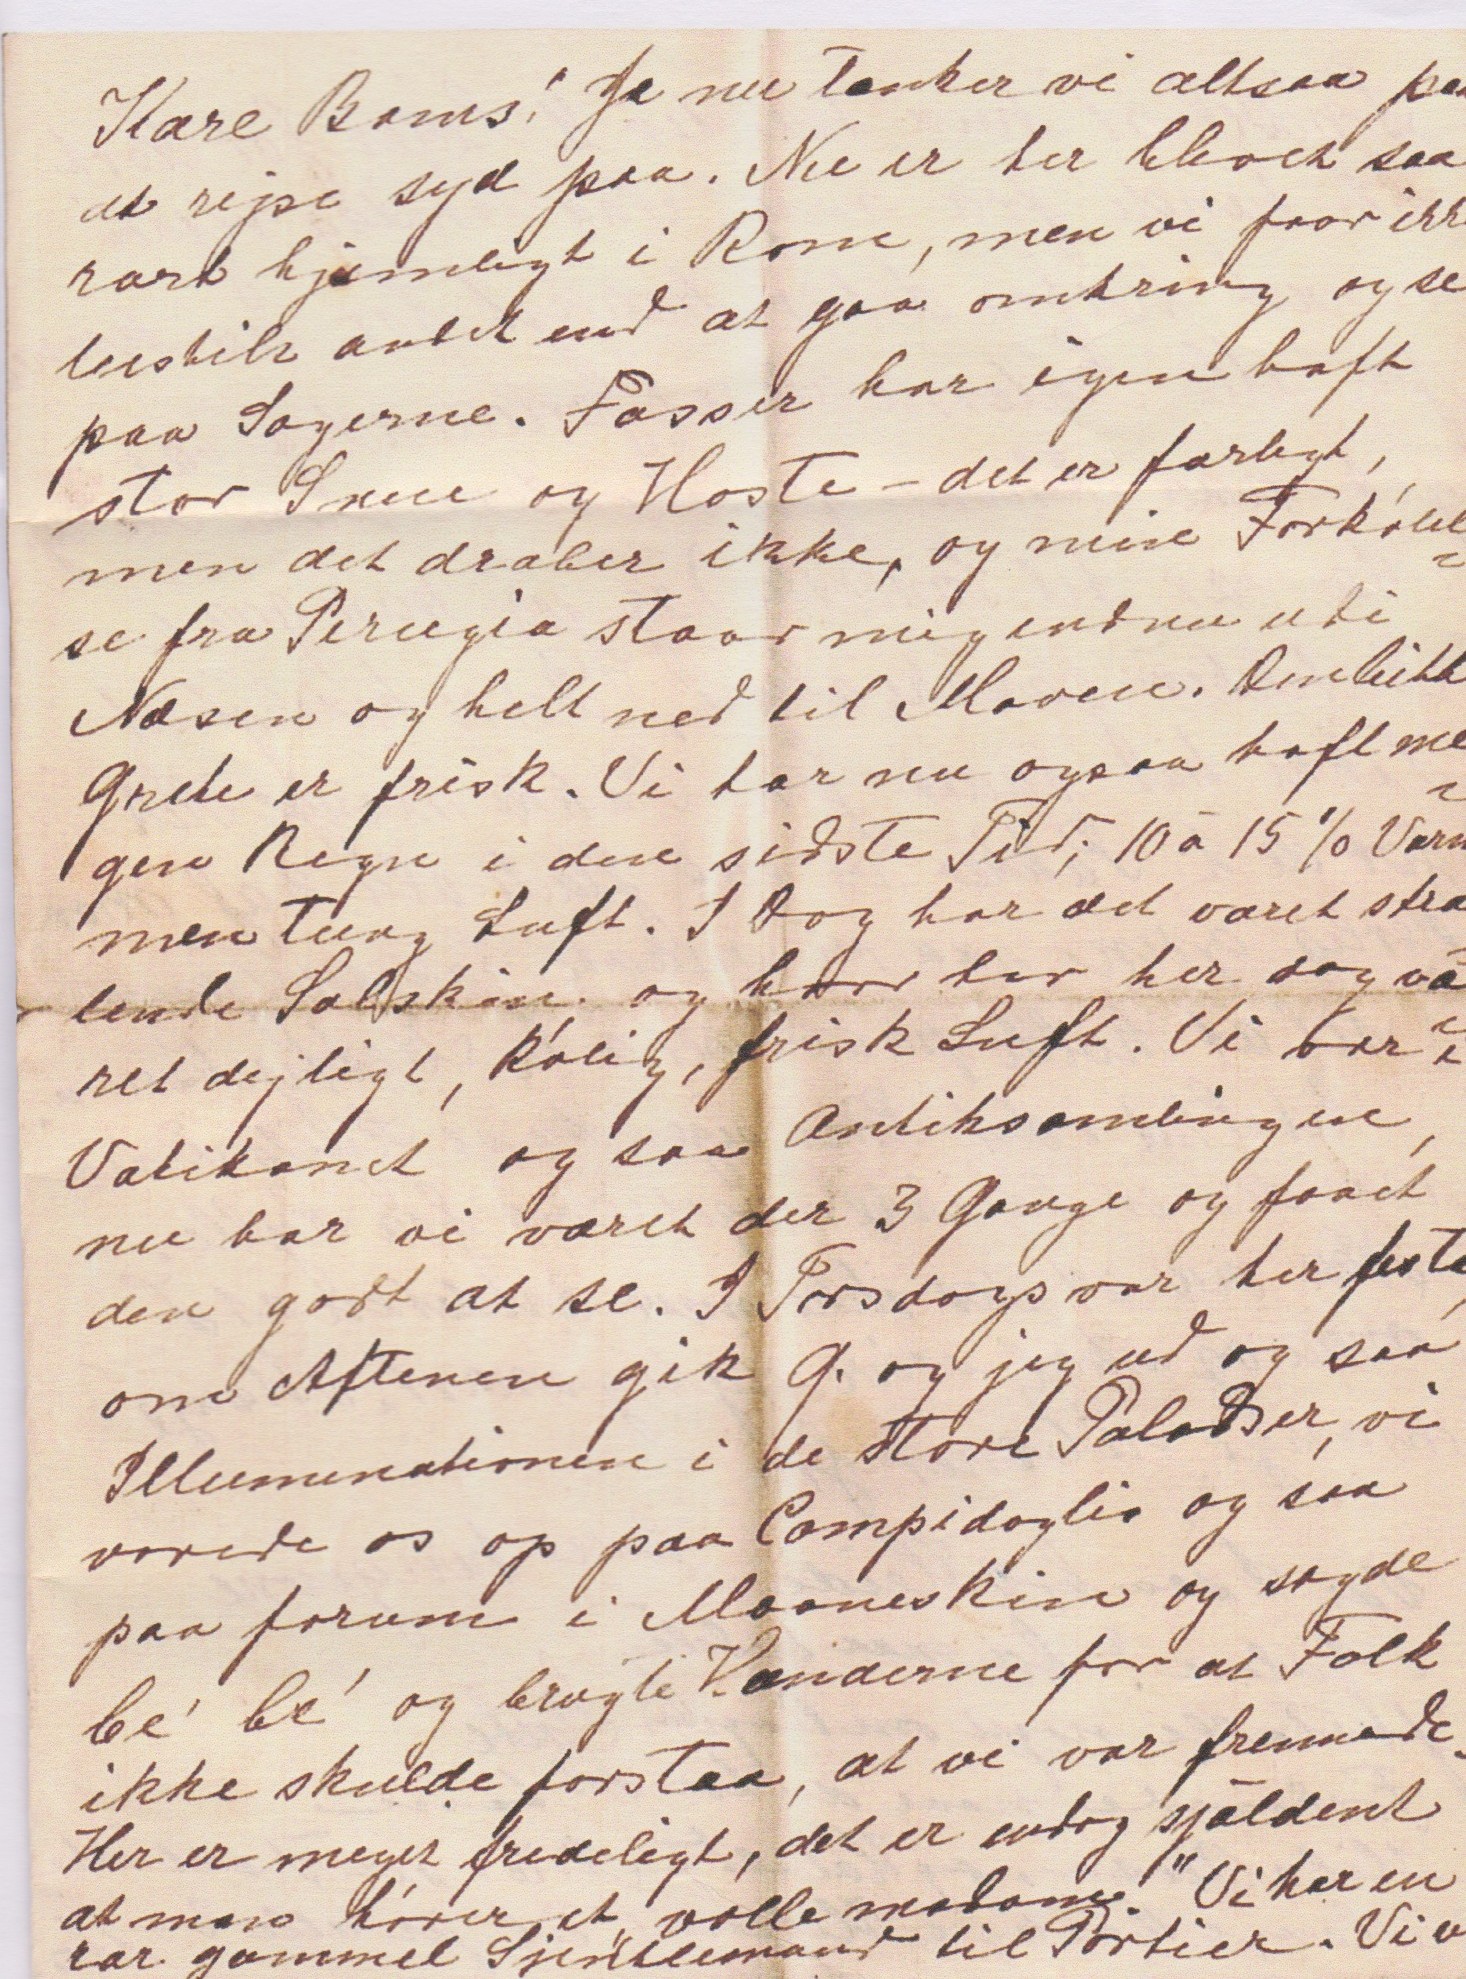 Kære Bams! Ja nu tenker vi altsaa paa
at rejse syd paa. Nu er her blevet saa
rart hjemligt i Rom, men vi faar ikk
bestilt andet end at gaa omkring og se
paa Sagerne. Fasser har igen haft
stor Snue og Hoste - det er farligt,
men det dræber ikke, og min Forkølel
se fra Perugia staar mig endnu udi
Næsen og helt ned til Maven. Den lille
Grete er frisk. Vi har nu ogsaa haft me
gen Regn i den sidste Tid; 10 à 15 % Varm
men tung Luft. I Dag har det været straa
lende Solskin, og her dog væ
ret dejligt, kølig, frisk Luft. Vi var i
Vatikanet og saa Antiksamlingen,
nu har vi været der 3 Gange og faaet
den godt at se. I Torsdags var her festa,
om Aftenen gik G. og jeg ud og saa
Illuminationen i de store Paladser, vi
vovede os op paa Campidoglio og saa
paa forum i Maaneskin og sagde
bé bé og brugte Hænderne for at Folk
ikke skulde forstaa, at vi var fremmede.
Her er meget fredeligt, det er endog sjældent
at man hører et „volle madame" Vi har en
rar gammel Sjentlemand til Portier. Vi v